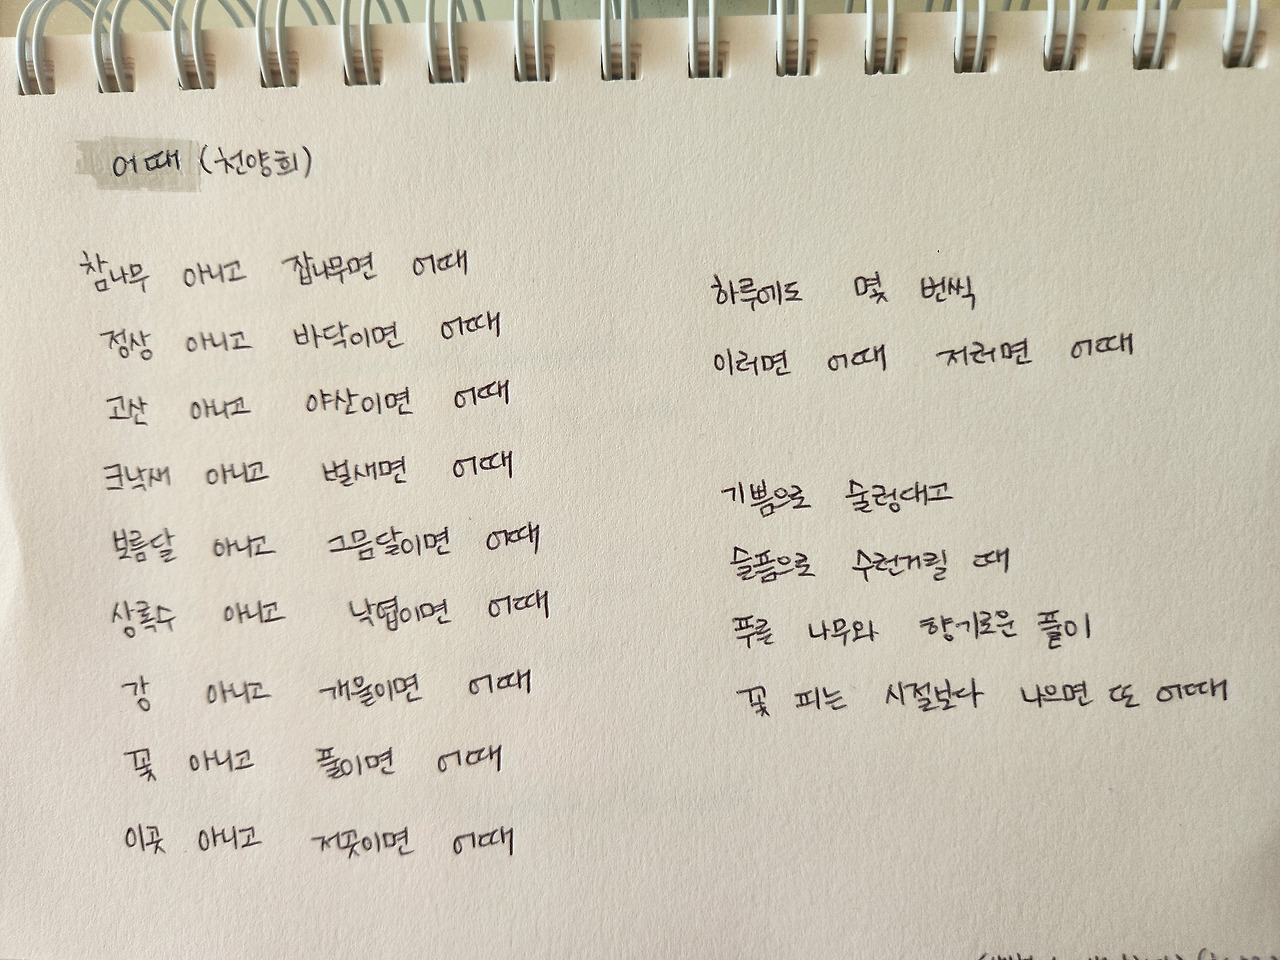 어때 (천양희)
참나무 아니고 잡나무면 어때
정상 아니고 바닥이면 어때
고산 아니고 야산이면 어때
크낙새 아니고 벌새면 어때
보름달 아니고 그믐달이면 어때
상록수 아니고 낙엽이면 어때
강 아니고 개울이면 어때
꽃 아니고 풀이면 어때
이곳 아니고 저곳이면 어때
하루에도 몇 번씩
이러면 어때 저러면 어때
기쁨으로 술렁대고
슬픔으로 수런거릴 때
푸른 나무와 향기로운 풀이
꽃 피는 시절보다 나으면 또 어때